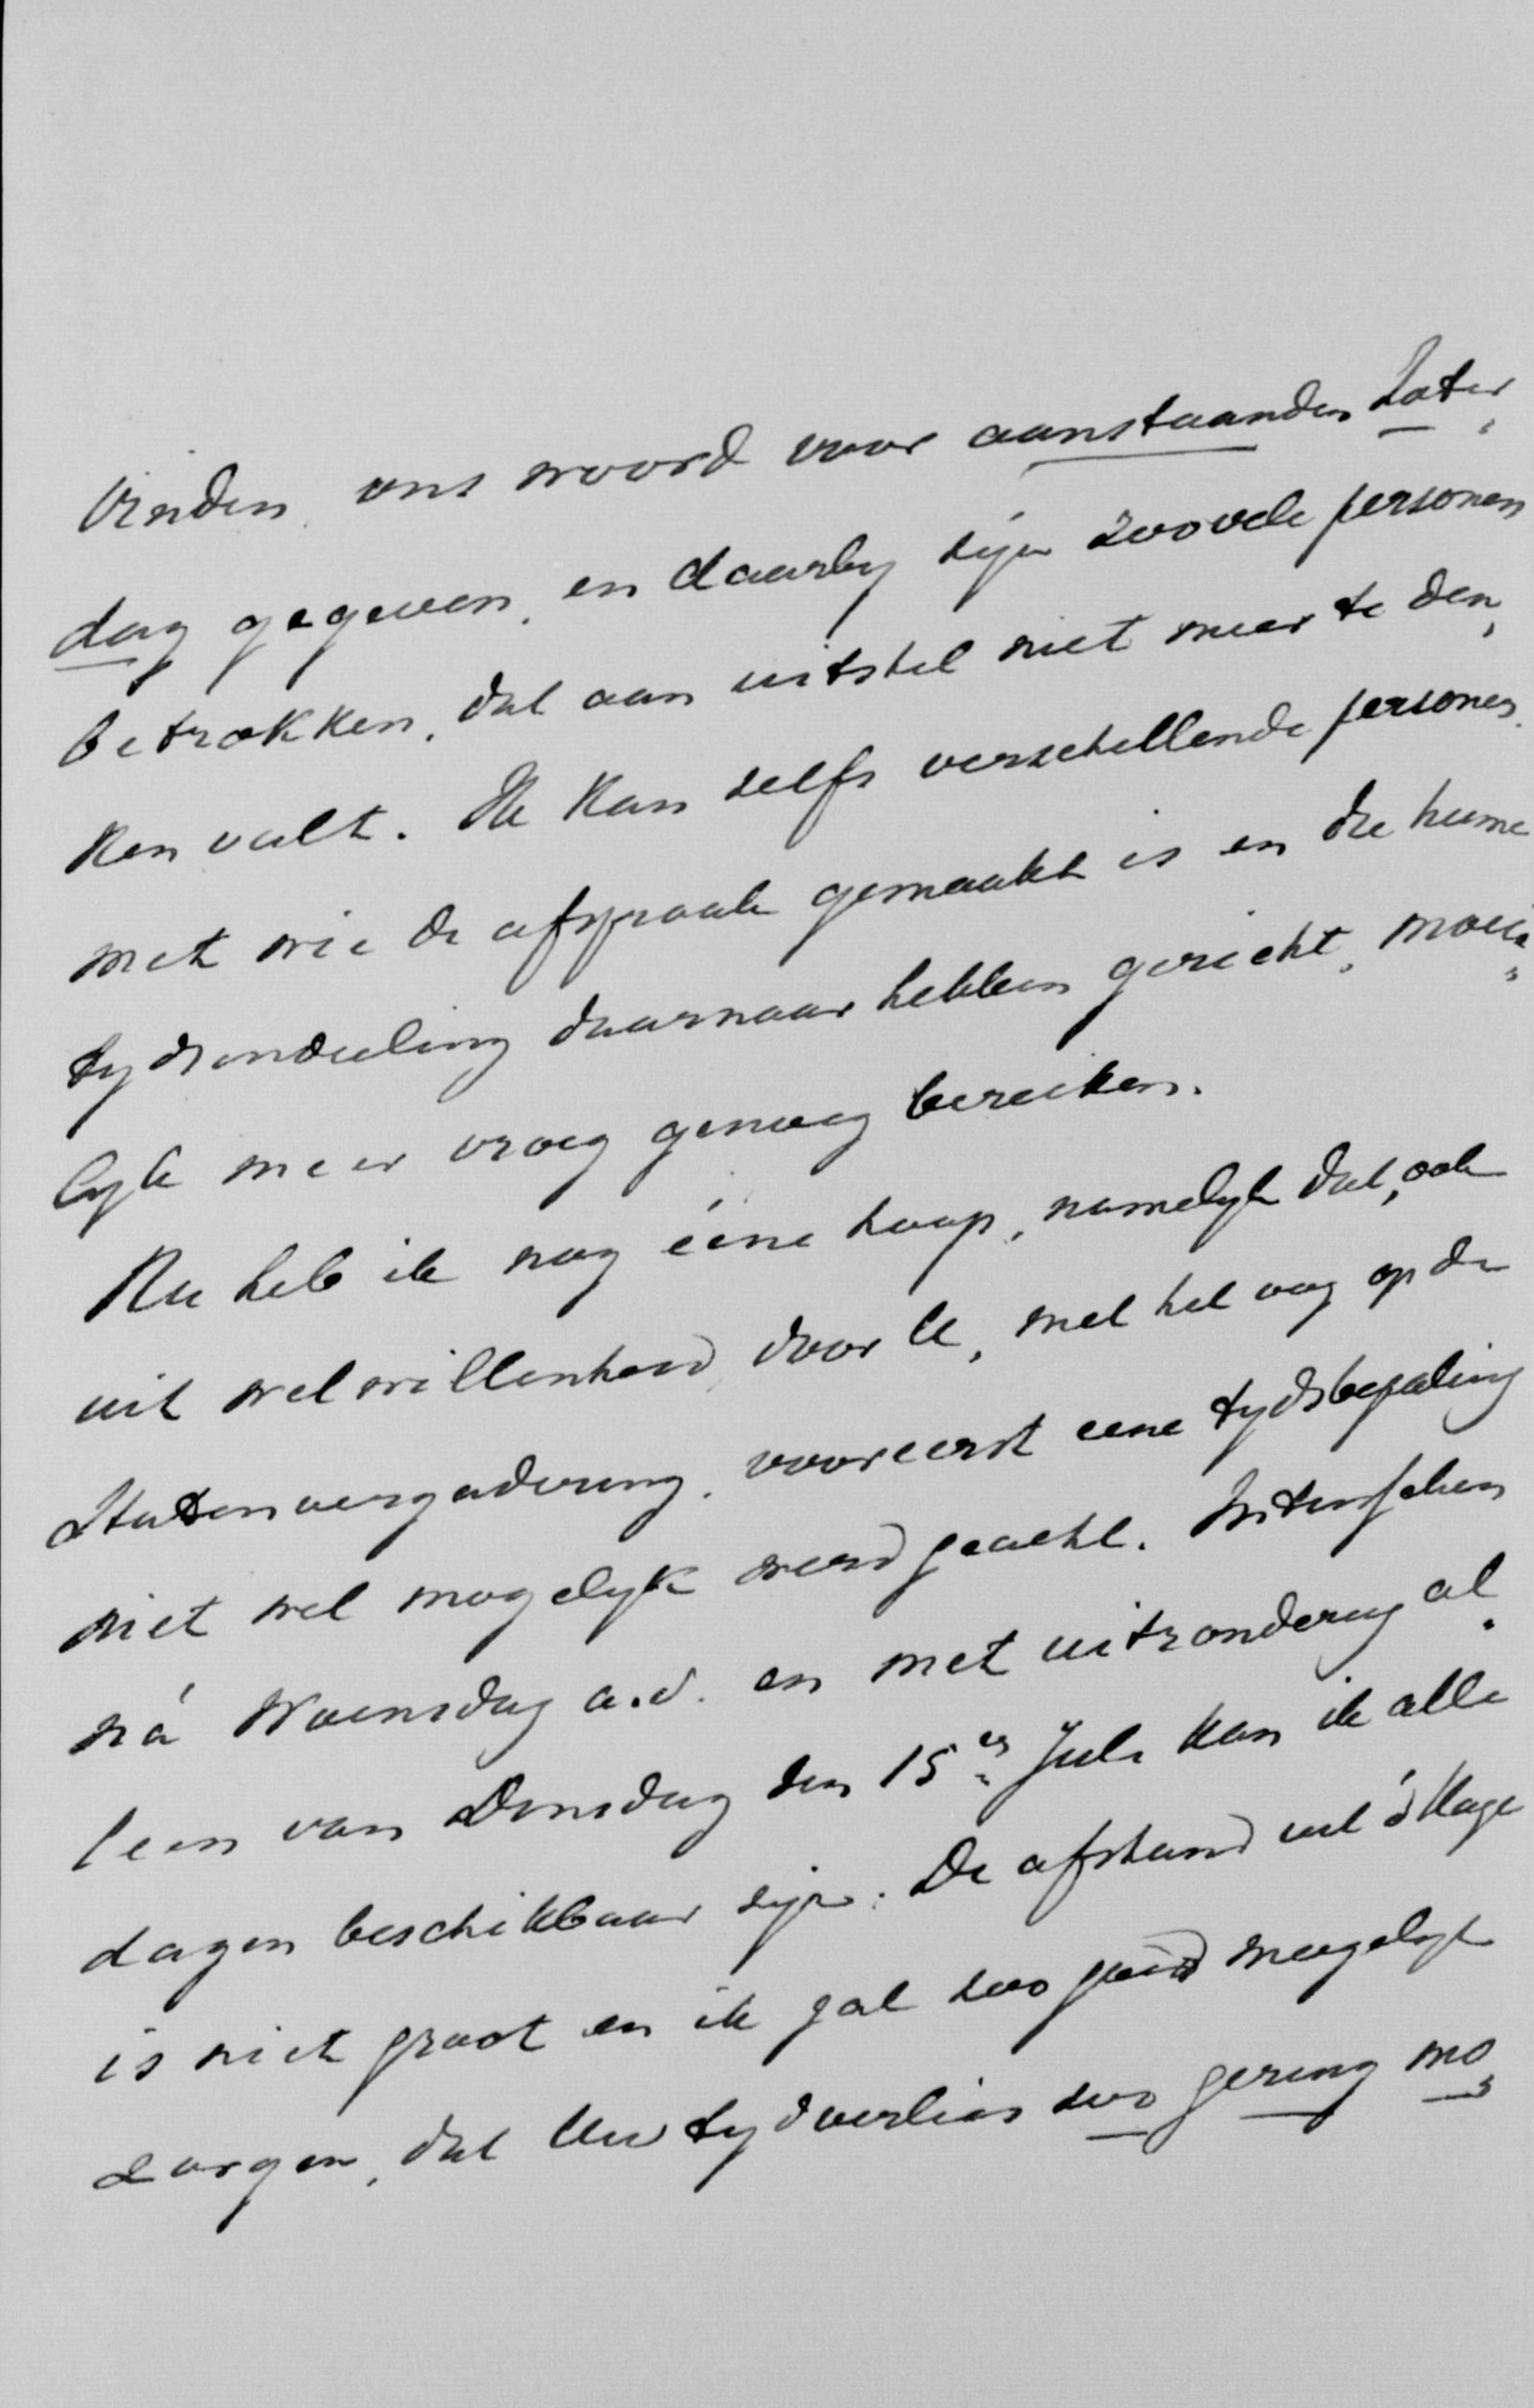 vrinden, ons woord voor aanstaanden Zater„
dag gegeven, en daarby zijn zoovele personen
betrokken, dat aan uitstel niet meer te den„
ken valt. Ik kan zelfs verschillende personen,
met wie de afspraak gemaakt is en die hunne
tydsindeeling daarnaar hebben gericht, moeie„
lyk meer vroeg genoeg bereiken.
Nu heb ik nog ééne hoop, namelyk dat, ook
uit welwillenheid door U, met het oog op de
Statenvergadering, vooreerst eene tydsbepaling
niet wel mogelyk werd geacht. Intusschen
ná Woensdag a.s. en met uitzondering al„
leen van Dinsdag den 15en Juli kan ik alle
dagen beschikbaar zijn. De afstand uit 's Hage
is niet groot en ik zal zoo goed mogelyk
zorgen, dat Uw tydverlies zoo gering mo„